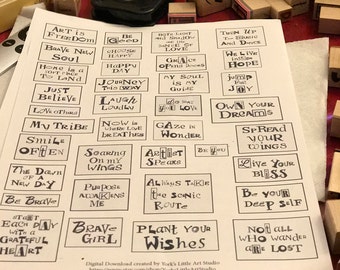 Art is
Freedom
Be
Good
Light and
Space of
Love
Turn Up
the Music
And Dance
Brave New
Soul
Choose
Happy
Grace
of Mind
We Live
Jump
for
Joy
Home is
to Land
Happy
Day
My Soul
is my
Guide
Just
Believe
Journey
This Way
Own Your
Dreams
Love others
Laugh
Loudly
Do what
you Love
My Tribe
Now is
where Love
Breathes
Gaze in
Wonder
Spread
your
Wings
Smile
often
Soaring
On my
Wings
Artist
Speaks
Be You
Live Your
Bliss
The Dawn
of a
New Day
Purpose
Awakens
Me
Always Take
the Scenic
Route
Be your
Deep Self
Start
Each Day
with a
Grateful
Heart
Brave
Girl
Plant Your
Wishes
Not all
who wander
are Lost
Digital Download created by Tori's Little Art Studio